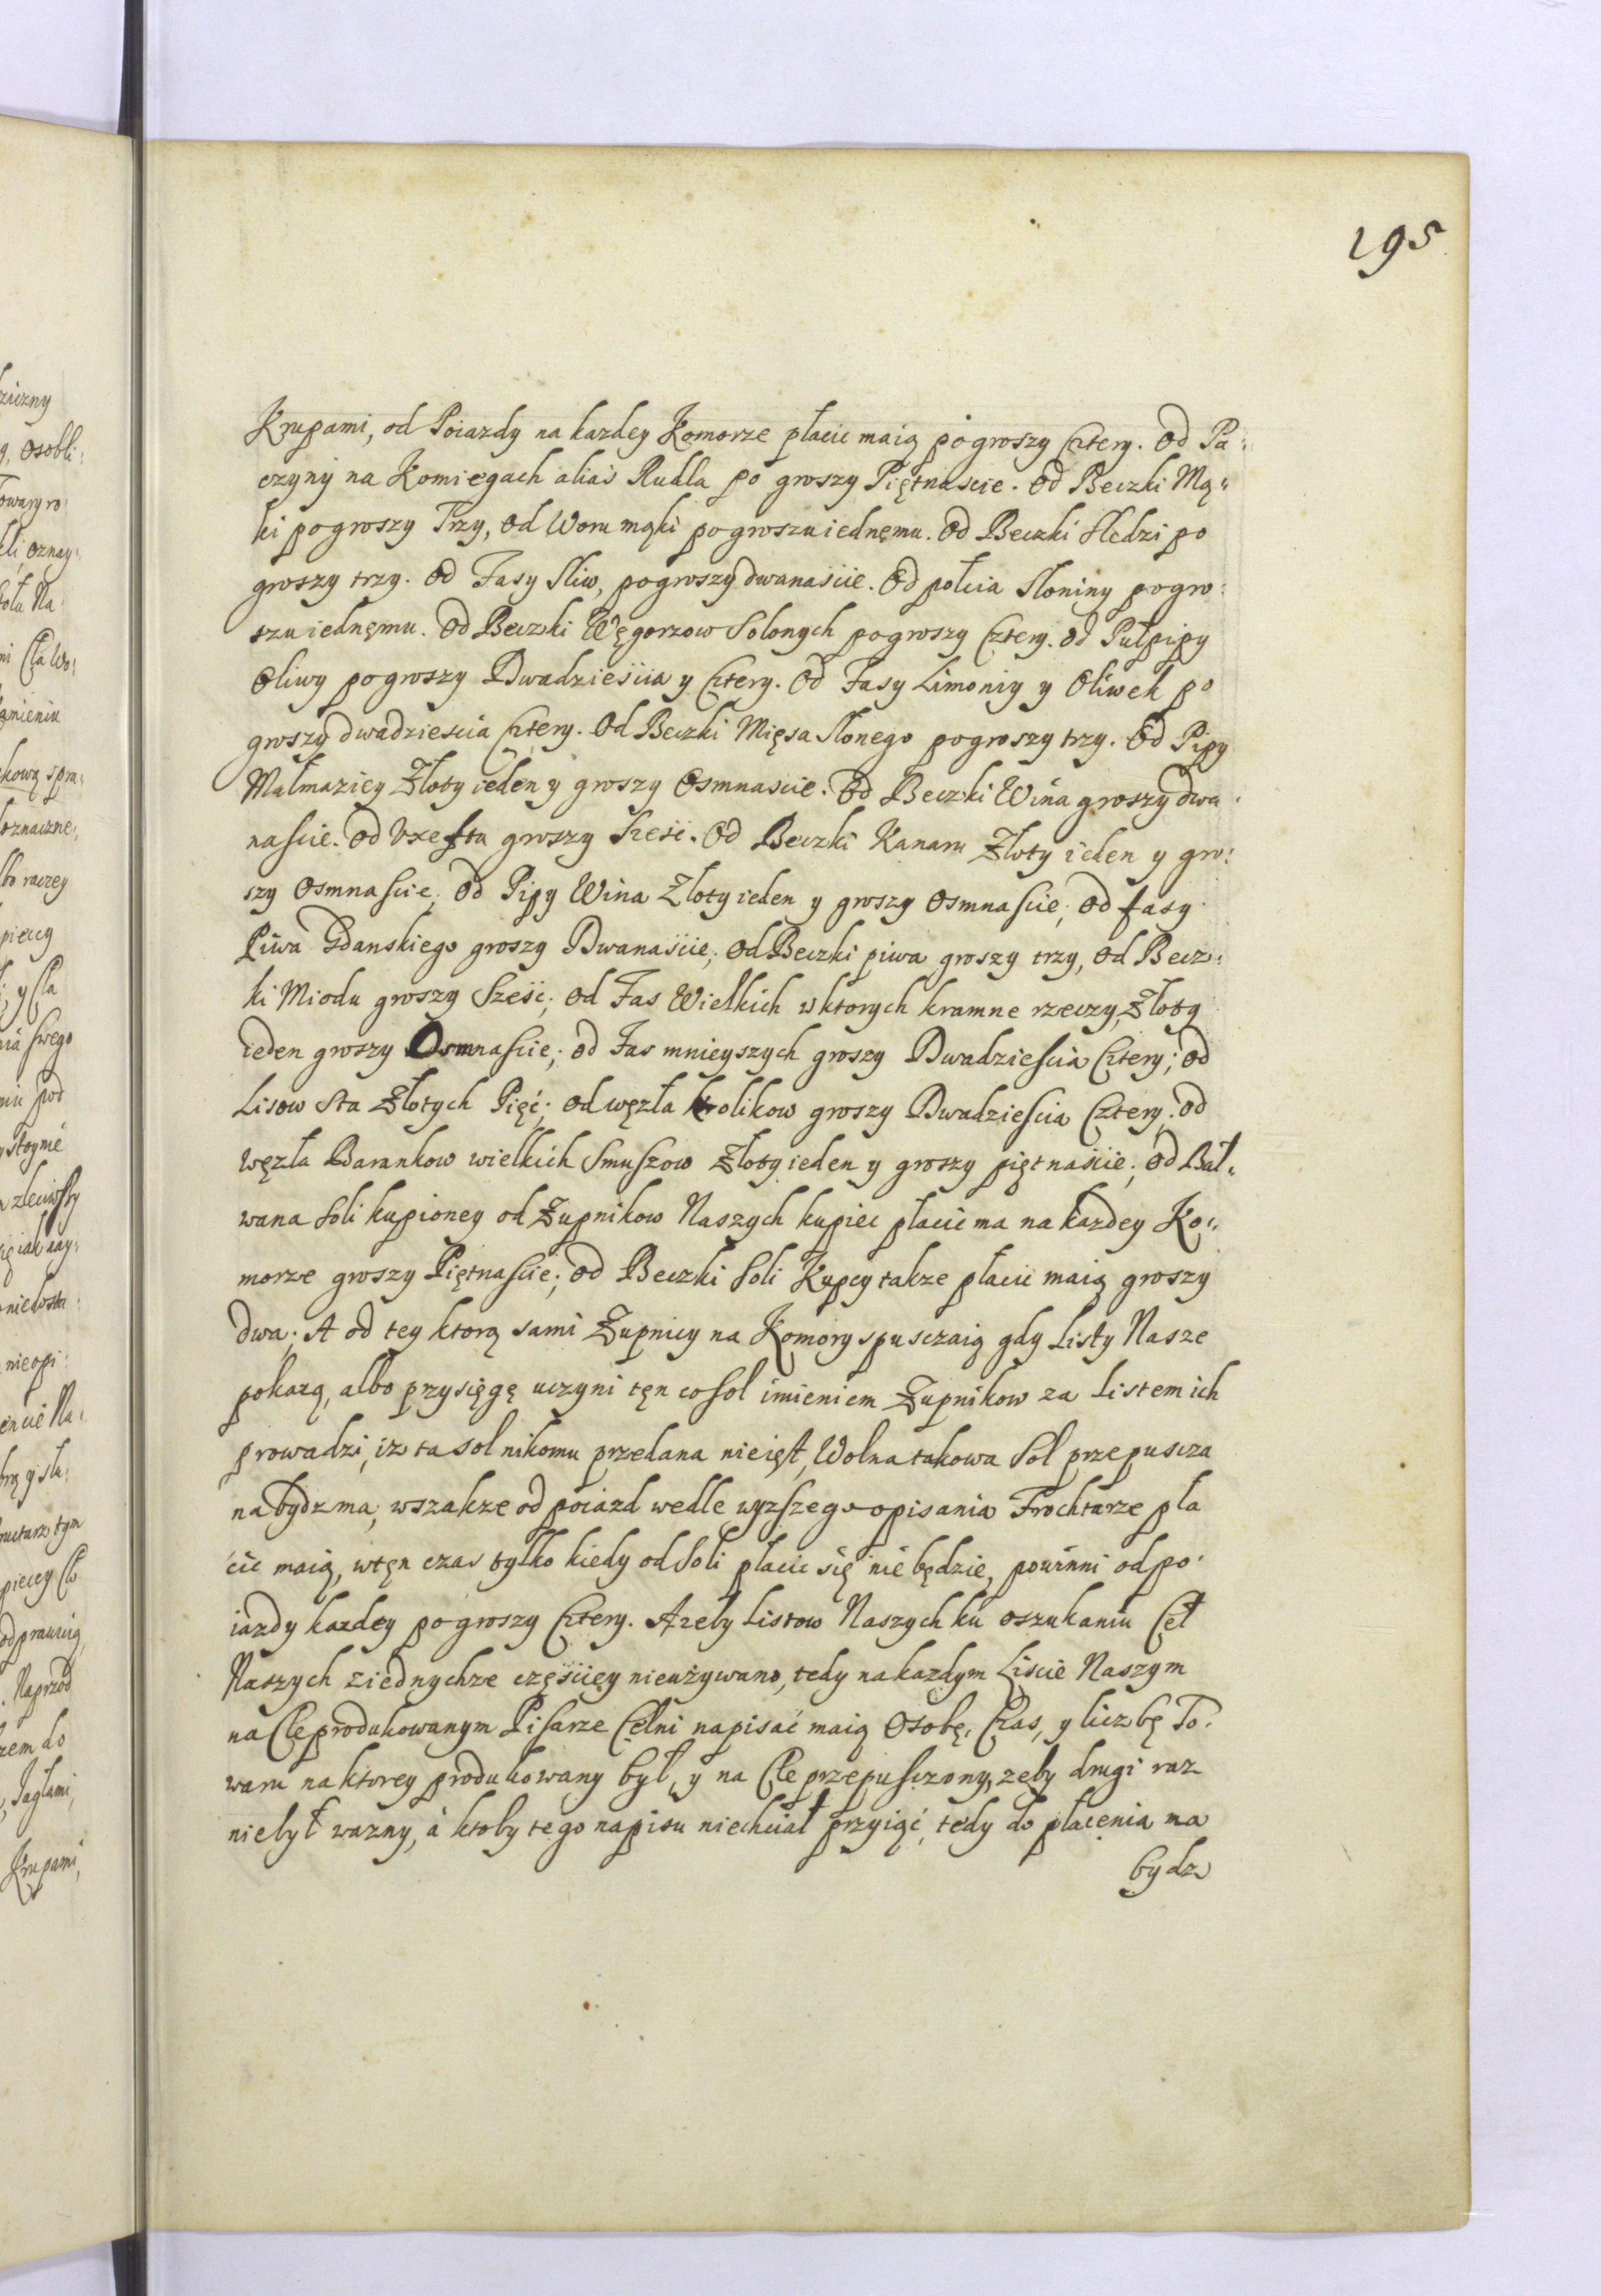 195
Krupami, od Poiazdy na kazdey Komorze płacic maią po groszy Cztery. Od Pa:
czyny na Komiegach alias Rudla po groszy Piętnascie. Od Beczki Mą:
ki po groszy Trzy, od Woru mąki po groszu iednęmu. Od Beczki Sledzi po
groszy trzy. Od Fasy Sliw, po groszy dwanaście. Od połcia Słoniny po gro:
szu iednęmu. Od Beczki Węgorzow Solonych po groszy Cztery. od Pułpipy
Oliwy po groszy Dwadzieścia y Cztery. Od Fasy Limoniy y Oliwek po
groszy dwadziescia Cztery. Od Beczki Mięsa słonego po groszy trzy. Od Pipy
Małmaziey Złoty ieden y groszy Osmnascie. Od Beczki Wina groszy dwa:
nascie. Od Vxefta groszy sześć. Od Beczki Kanaru Złoty ieden y gro:
szy Osmnascie, Od Pipy Wina Złoty ieden y groszy Osmnascie, Od fasy
Piwa Gdanskiego groszy Dwanaście; Od Beczki piwa groszy trzy, Od Becz:
ki Miodu groszy Sześc; Od Fas Wielkich w ktorych kramne rzeczy, Złoty
ieden groszy Osmnascie; od Fas mnieyszych groszy Dwadziescia Cztery; od
Lisow sta Złotych Pięć; Od węzła krolikow groszy Dwadziescia Cztery. Od
węzła Barankow wielkich Smuszow Złoty ieden y groszy piętnaście; Od Bał:
wana Soli kupioney od Zupnikow Naszych kupiec płacic ma na kazdey Ko:
morze groszy Piętnascie; Od Beczki Soli Kupcy takze płacic maią groszy
dwa; A od tey ktorą sami Zupnicy na Komory spusczaią gdy Listy Nasze
pokazą, albo przysięgę uczyni tęn co sol imieniem Zupnikow za Listem ich
prowadzi, iz ta sol nikomu przedana nieięst, Wolna takowa Sol przepuscza
na bydz ma, wszakze od poiazd wedle wyzszego opisania Frochtarze pła
cic maią, wtęn czas tylko kiedy od Soli płacic się nie będzie, powinni od po:
iazdy kazdey po groszy Cztery. Azeby Listow Naszych ku oszukaniu Ceł
Naszych ziednychze częściey nieużywano, tedy na kazdym Liscie Naszym
na Cle produkowanym Pisarze Cęlni napisać maią Osobę, Czas, y liczbę To:
waru na ktorey produkowany był, y na Cle przepusczony, zeby drugi raz
niebył wazny, á ktoby tego napisu niechciał przyiąć, tedy do płacęnia ma
bydz